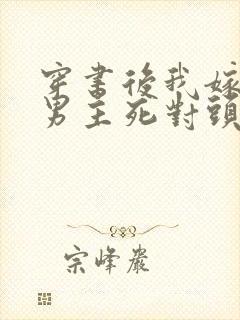 穿書後我嫁
男主死對頭
宗峰巖